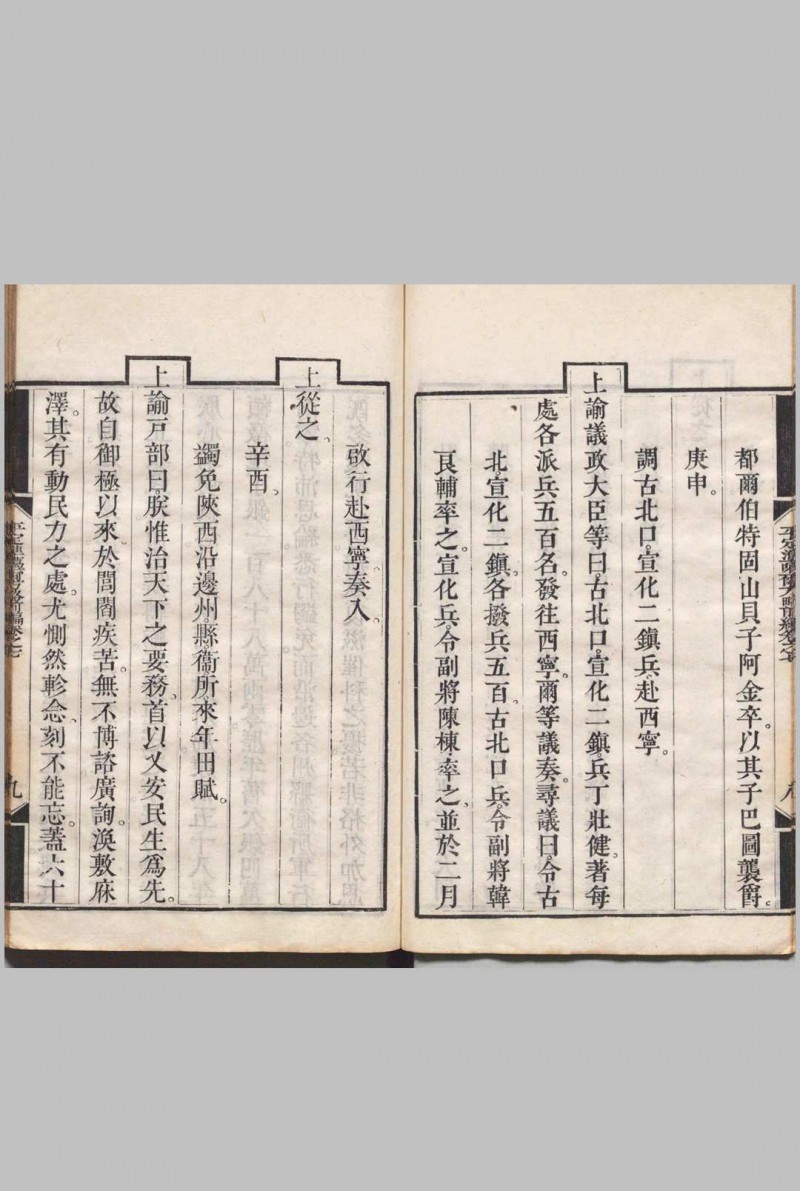 都爾伯特固山貝子阿金卒。以其子巴圖襲爵。
庚申。
調古北口。宣化二鎮兵赴西寧。
上諭議政大臣等曰。古北口。宣化二鎮。兵丁壯健。著每
處各派兵五百名。發往西寧。爾等議奏。尋議曰。令古
北。宣化二鎮。各撥兵五百。古北口兵。令副將韓
良輔率之。宣化兵。令副將陳棟。率之。並於二月
啟行赴西寧。奏入。
上從之。
辛酉。
蠲免陝西沿邊州。縣。衞。所。來年田賦。
上諭戶部曰。朕惟治天下之要務。首以乂安民生爲先。
故自御極以來。於閭閻疾苦。無不博諮廣詢。渙敷庥
澤。其有動民力之處。尤惻然軫念。刻不能忘。蓋六十
平定準噶爾方略前編卷之七
八
平定準噶爾方略前編卷之七
九